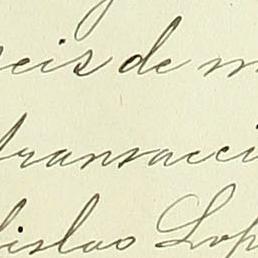 eis de m
transacci
islao Lop